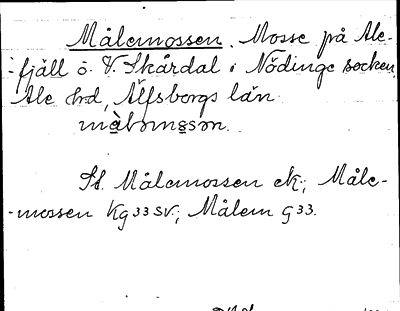 Målemossen. Mosse på Ale-
fjäll ö. V. Skårdal i Nödinge socken,
Ale hd, Älfsborgs län.
St. Målemossen ek; Måle-
-mossen Kg 33 SV.; Målem G 33.